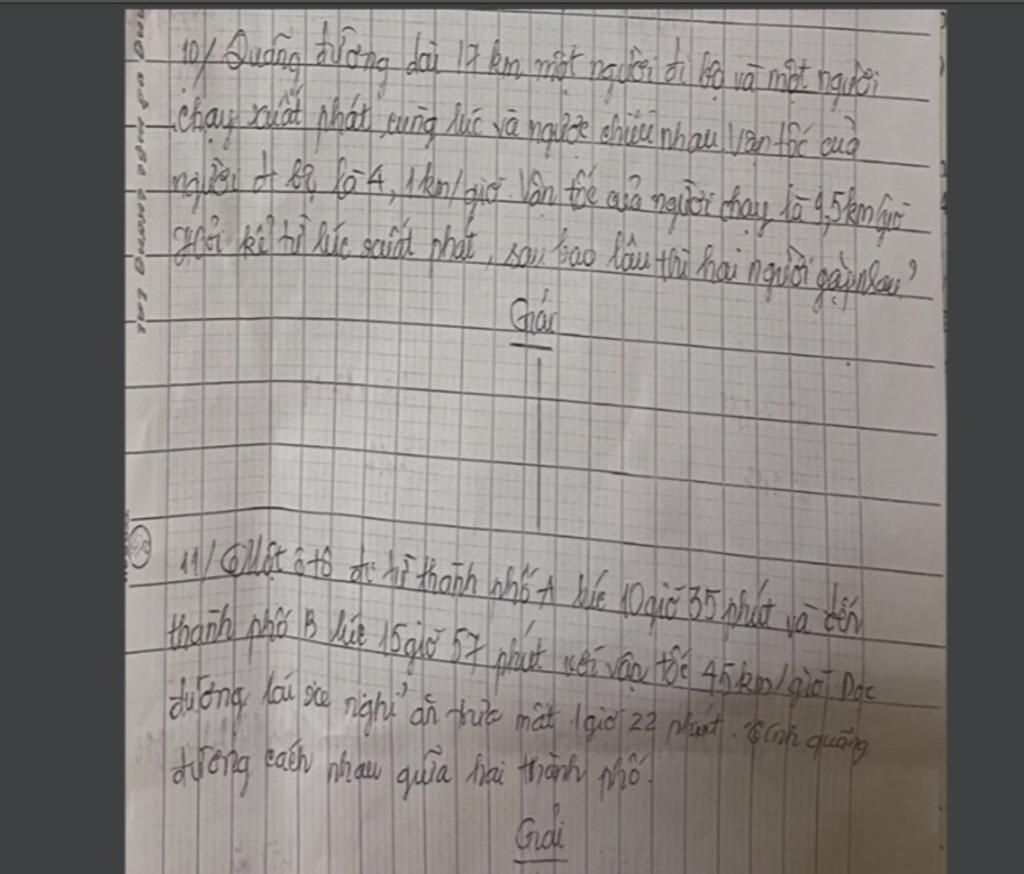 10/ Quãng đường dài 17 km một người đi bộ và một người
chạy xuất phát cùng lúc và ngược chiều nhau Vận tốc của
người đi bộ là 4,1km/giờ. Vận tốc của người chạy là 9,5km/giờ
Hỏi kể từ lúc suất phát, sau bao lâu thì hai người gặp nhau?
Giải
11/ Một ô tô đi từ thành phố A lúc 10giờ 35 phút và đến
thành phố B lúc 15giờ 57 phút với vận tốc 45km/giờ Dọc
đường lái xe nghỉ ăn trưa mất 1giờ 22 phút. Tính quãng
đường cách nhau giữa hai thành phố.
Giải